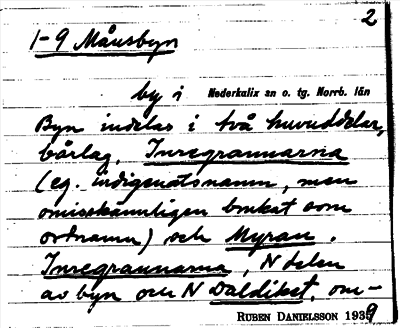 2
1-9 Månsbyn
by i Nederkalix sn o. tg. Norrb. län
Byn indelas i två huvuddelar,
bårlag, Inregrannarna
(eg. indigenatsnamn, men
omisskännligen brukat som
ortnamn) och Myran.
Inregrannarna, N delen
av byn och N Daldiket, om-
RUBEN DANIELSSON 1939